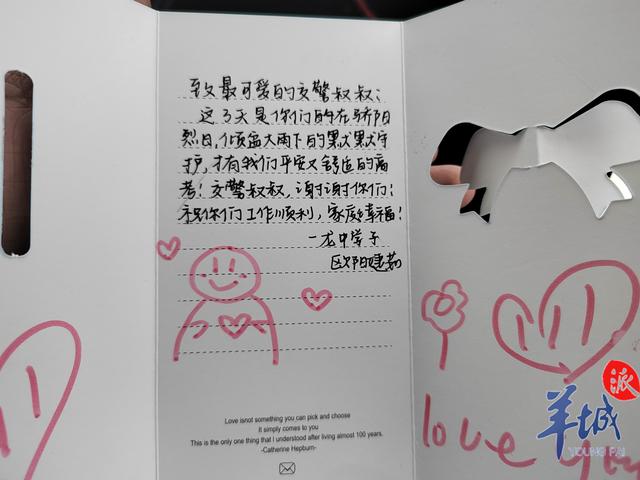 致最可爱的交警叔叔:
这3天是你们的在骄阳
烈日,倾盆大雨下的默默守
护,才有我们平安又舒适的高
考!交警叔叔,谢谢你们!
祝你们工作顺利,家庭幸福!
一龙中学子
欧阳婕茹
Love isnot something you can pick and choose
it simply comes to you
This is the only one thing that I understood after living almost 100 years.
-Catherine Hepburn-
love you
羊城派
YOUNG PAI